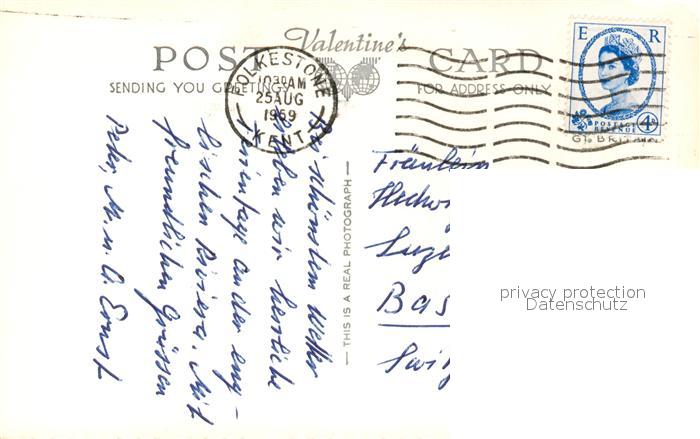 Valentine's
POST CARD
SENDING YOU GREETINGS
FOR ADDRESS ONLY
FOLKESTONE
1030AM
25 AUG
1959
KENT
E R
POSTAGE
REVENUE
4D
GT. BRITAIN
Bei schönstem Wetter
erleben wir herrliche
Ferientage an der eng-
lischen Riviera. Mit
freundlichen Grüssen
Peter, M. u. A. Ernst
— THIS IS A REAL PHOTOGRAPH —
Fräulein
Hedwi
Luze
Bas
Swi
privacy protection
Datenschutz